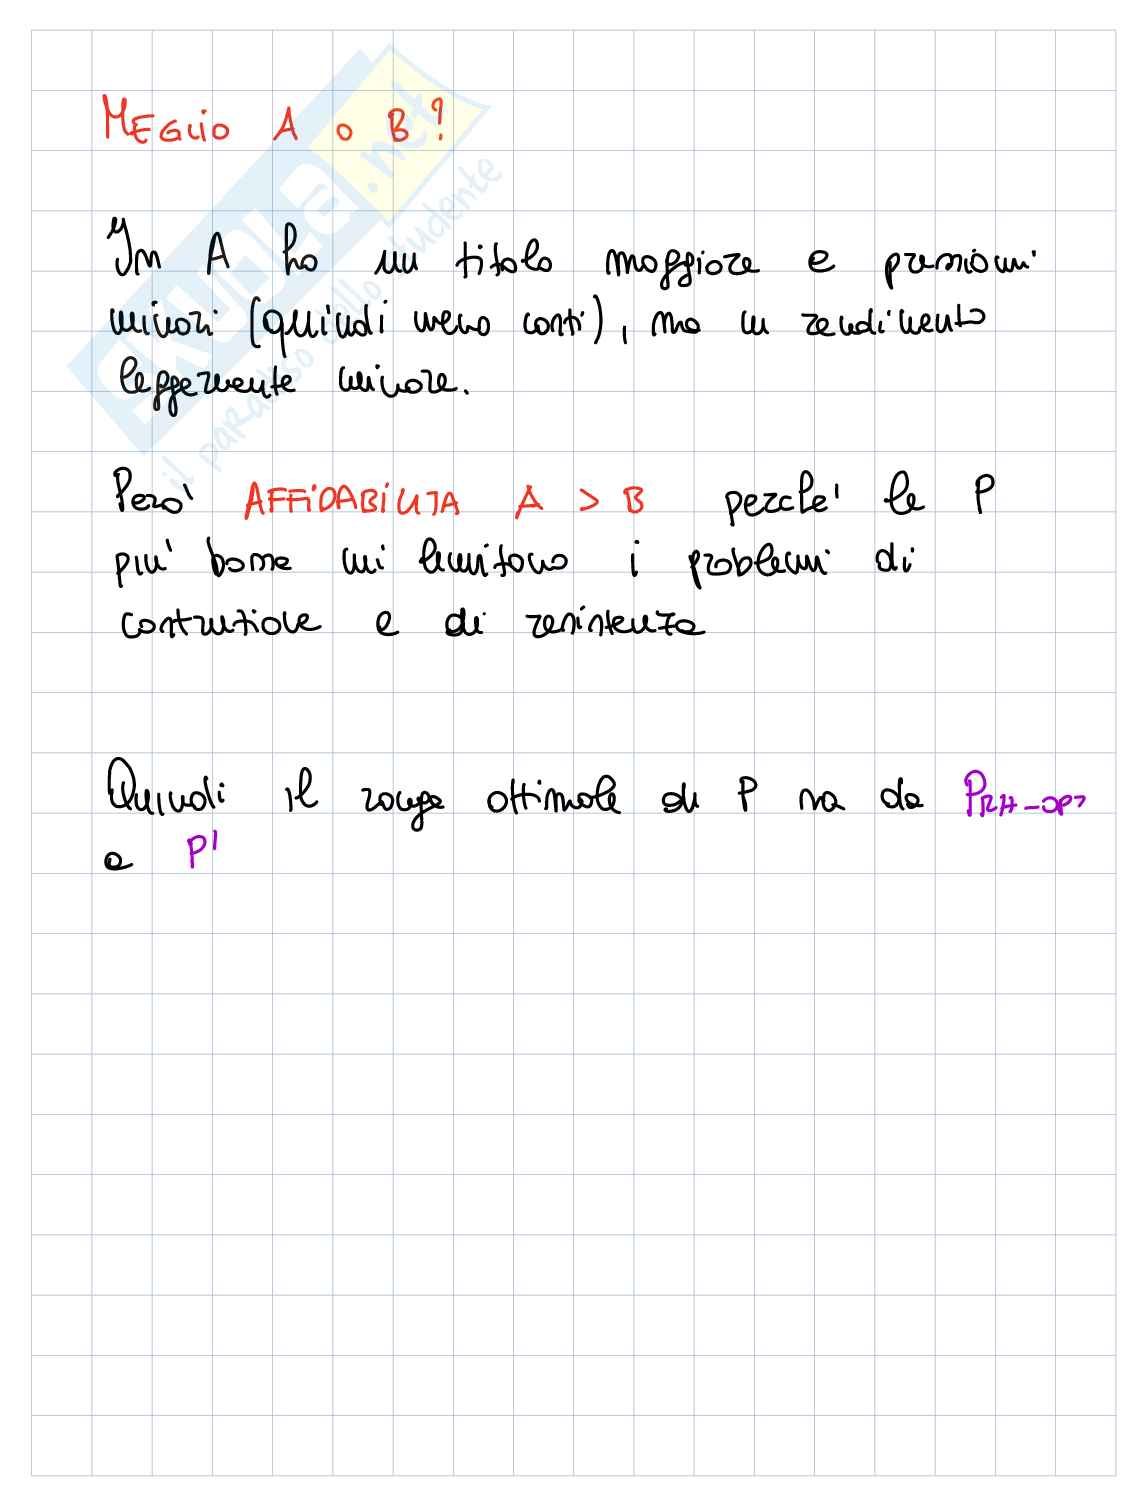 MEGLIO A o B?
In A ho un titolo maggiore e pressioni
minori (quindi meno costi), ma un rendimento
leggermente minore.
Pero' AFFIDABILITA A > B perche' le P
piu' basse mi limitano i problemi di
costruzione e di resistenza
Quindi il range ottimale di P va da PRH-OPT
a P'
SKUOLA.net
il paradiso dello studente